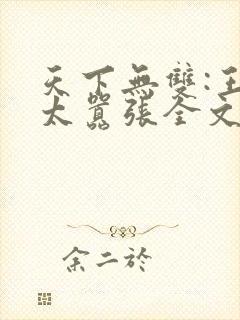 天下無雙:王
太囂張全文
余二於